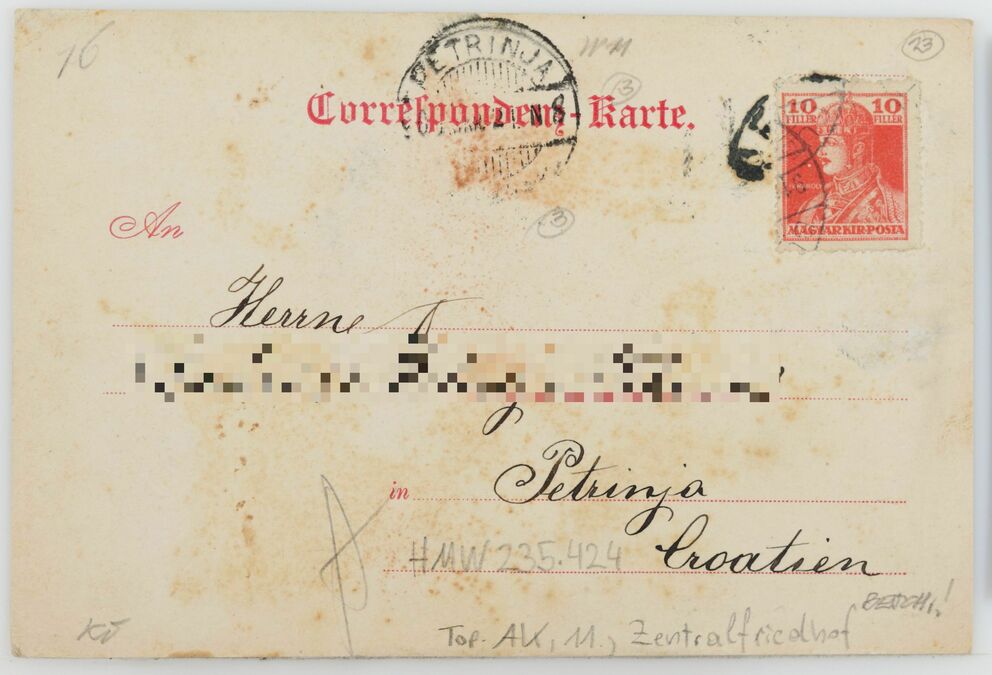 16
23
PETRINJA
Correspondenz-Karte.
3
10 10
FILLER FILLER
MAGYAR KIR. POSTA
An
3
Herrn
Petrinja
in
Croatien
HMW 235.424
Top. AK, 11., Zentralfriedhof